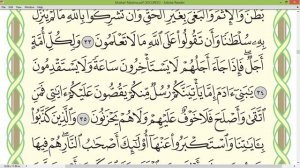 Mushaf Madinah.pdf (SECURED) - Adobe Reader
بَطَنَ وَٱلْإِثْمَ وَٱلْبَغْىَ بِغَيْرِ ٱلْحَقِّ وَأَن تُشْرِكُوا۟ بِٱللَّهِ مَا لَمْ يُنَزِّلْ
بِهِۦ سُلْطَـٰنًا وَأَن تَقُولُوا۟ عَلَى ٱللَّهِ مَا لَا تَعْلَمُونَ ٣٣ وَلِكُلِّ أُمَّةٍ
أَجَلٌ فَإِذَا جَآءَ أَجَلُهُمْ لَا يَسْتَأْخِرُونَ سَاعَةً وَلَا يَسْتَقْدِمُونَ
٣٤ يَـٰبَنِىٓ ءَادَمَ إِمَّا يَأْتِيَنَّكُمْ رُسُلٌ مِّنكُمْ يَقُصُّونَ عَلَيْكُمْ ءَايَـٰتِى فَمَنِ
ٱتَّقَىٰ وَأَصْلَحَ فَلَا خَوْفٌ عَلَيْهِمْ وَلَا هُمْ يَحْزَنُونَ ٣٥ وَٱلَّذِينَ كَذَّبُوا۟
بِـَٔايَـٰتِنَا وَٱسْتَكْبَرُوا۟ عَنْهَآ أُو۟لَـٰٓئِكَ أَصْحَـٰبُ ٱلنَّارِ هُمْ فِيهَا